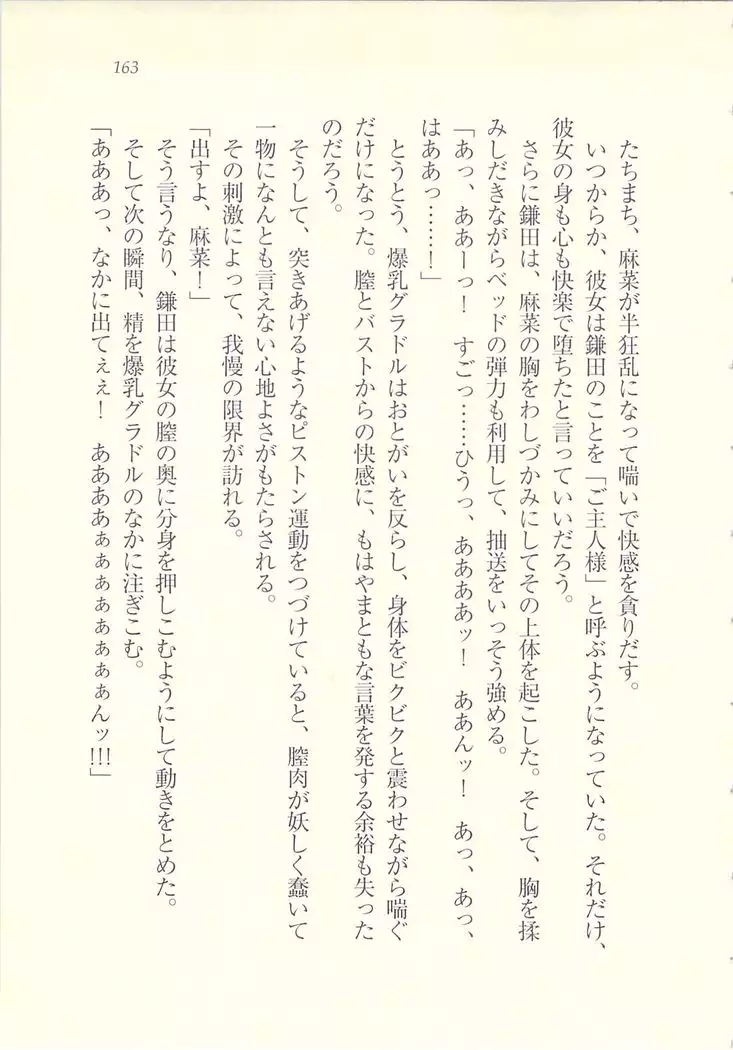 163
たちまち、麻菜が半狂乱になって喘いで快感を貪りだす。
いつからか、彼女は鎌田のことを「ご主人様」と呼ぶようになっていた。それだけ、
彼女の身も心も快楽で堕ちたと言っていいだろう。
さらに鎌田は、麻菜の胸をわしづかみにしてその上体を起こした。そして、胸を揉
みしだきながらベッドの弾力も利用して、抽送をいっそう強める。
「あっ、ああーっ！　すごっ……ひうっ、ああああッ！　ああんッ！　あっ、あっ、
はああっ……！」
とうとう、爆乳グラドルはおとがいを反らし、身体をビクビクと震わせながら喘ぐ
だけになった。膣とバストからの快感に、もはやまともな言葉を発する余裕も失った
のだろう。
そうして、突きあげるようなピストン運動をつづけていると、膣肉が妖しく蠢いて
一物になんとも言えない心地よさがもたらされる。
その刺激によって、我慢の限界が訪れる。
「出すよ、麻菜！」
そう言うなり、鎌田は彼女の膣の奥に分身を押しこむようにして動きをとめた。
そして次の瞬間、精を爆乳グラドルのなかに注ぎこむ。
「あああっ、なかに出てぇぇ！　ああああぁぁぁぁぁぁぁぁんッ!!!」